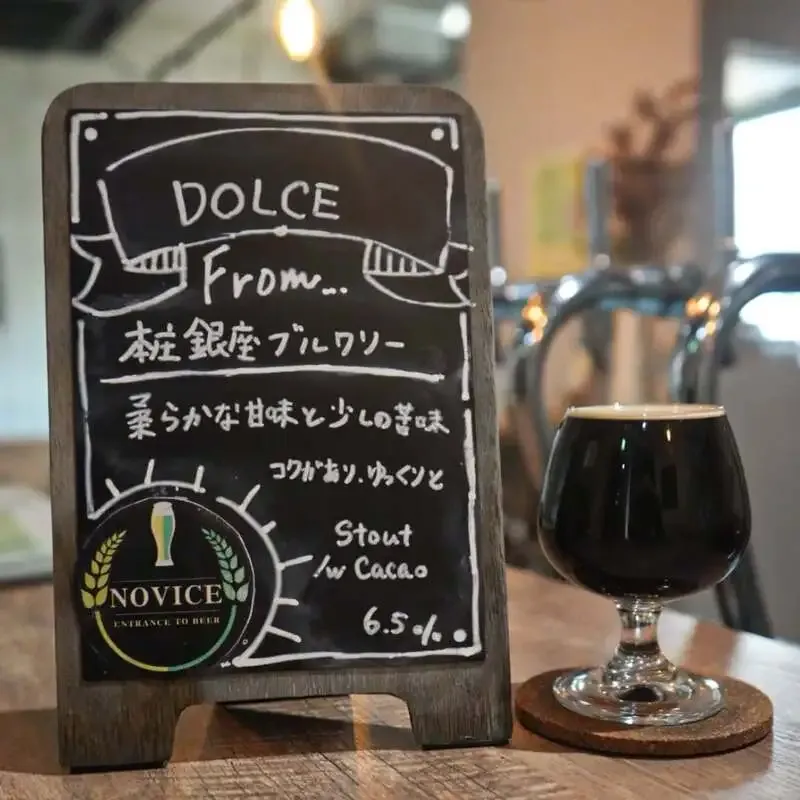 DOLCE
From...
本庄銀座ブルワリー
柔らかな甘味と少しの苦味
コクがあり、ゆっくりと
Stout
/w Cacao
6.5%
NOVICE
ENTRANCE TO BEER